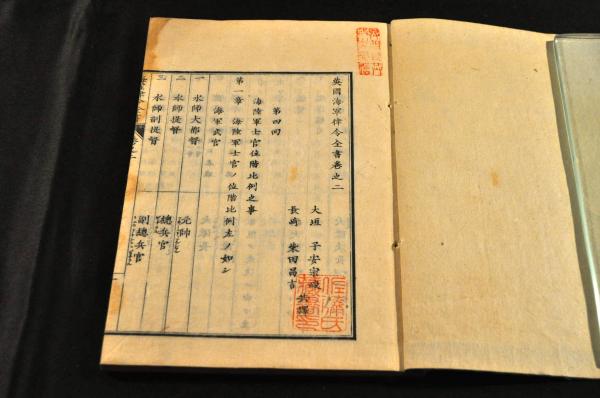 英國海軍律令全書卷之二
大垣 子安宗峻
長崎 柴田昌吉 共譯
第四回
海陸軍士官位階比例之事
第一章 海陸軍士官ノ位階比例左ノ如シ
海軍武官
一 水師大都督 元帥
二 水師提督 總兵官
三 水師副提督 副總兵官